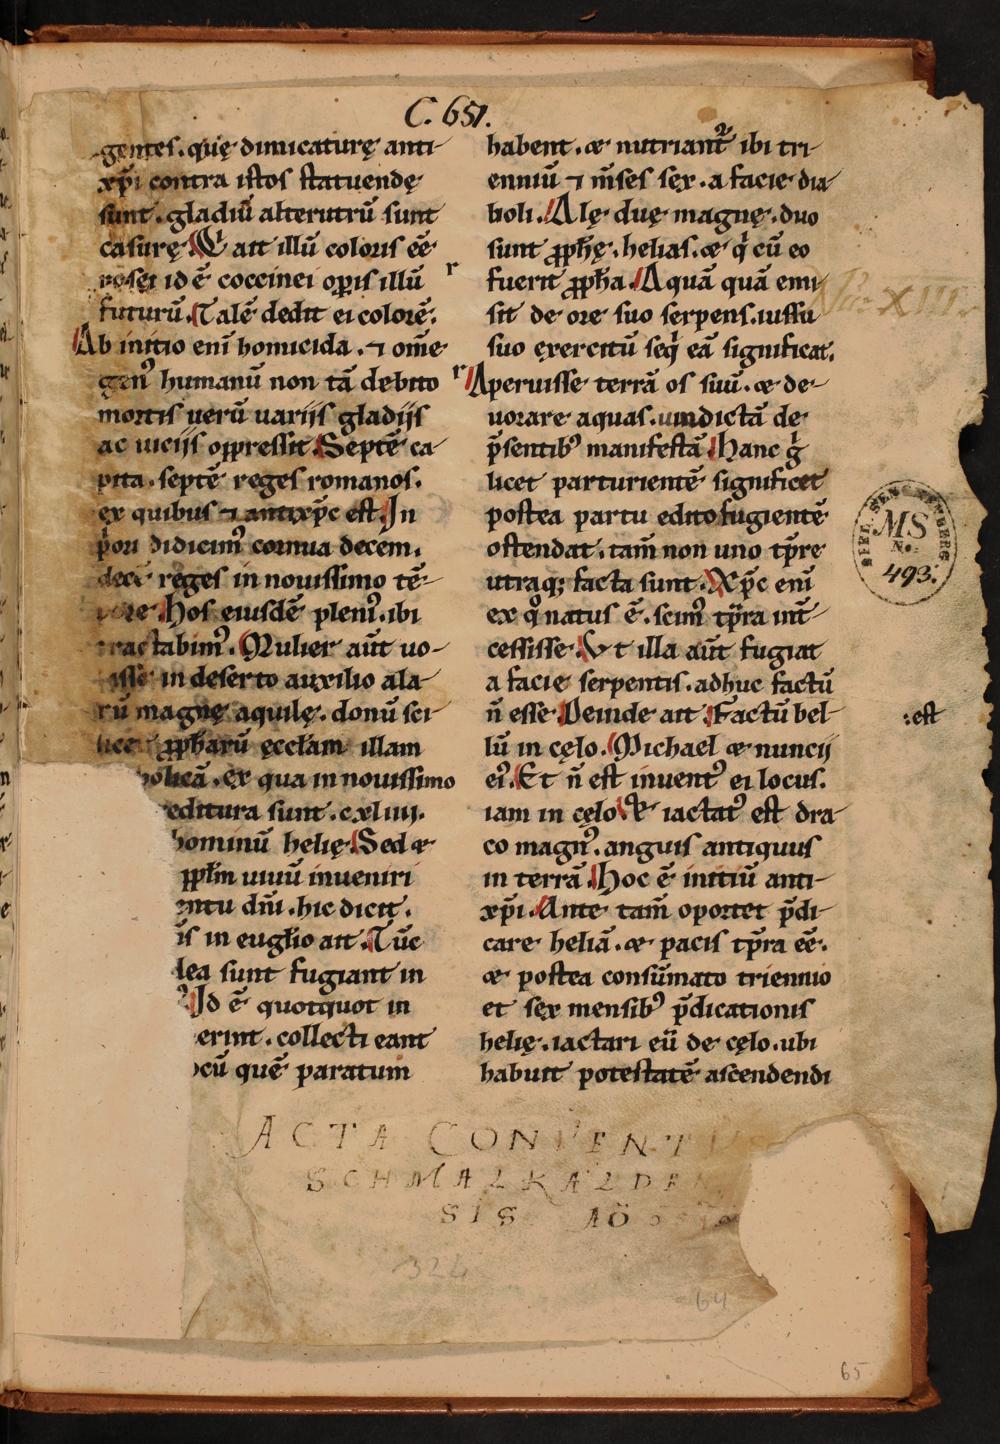 C. 651.
gentes. quę dimicaturę anti-
xp̄i contra istos statuendę
sunt. gladiū alterutrū sunt
casurę. Et ait illū coloris eē
rosei id ē coccinei oꝑis illū
futurū. Talē dedit ei colorē.
Ab initio eni homicida. ⁊ om̄e
gen᷒ humanū non tā debito
mortis uerū uariis gladiis
ac uiciis oppressit. Septē ca
pita. septē reges romanos.
ex quibus ⁊ antixp̄c est. In
p̄ori didicim᷒ cornua decem.
decē reges in nouissimo tē-
Hos eiusdē pleni᷒. ibi
tractabim᷒. Mulier aūt uo-
in deserto auxilio ala-
rū magnę aquilę. donū sci
ꝓpharū ęcclam illam
ex qua in nouissimo
editura sunt. cxliiii.
hominū helię. Sed ⁊
ꝓphm uiuū inueniri
dn̄i. hic dicit.
in euglio ait. Tūc
sunt fugiant in
Id ē quotquot in
collecti eant
quē paratum
habent. & nutriant᷑ ibi tri-
enniū ⁊ m̄ses sex. a facie dia
boli. Alę duę magnę. duo
sunt ꝓphę. helias. & q cū eo
fuerit ꝓpha. Aquā quā emi-
sit de ore suo serpens. iussu
suo exercitū seq eā significat.
Aperuisse terrā os suū. & de-
uorare aquas. uindictā de
p̄sentib᷒ manifestā. Hanc g
licet parturientē significet
postea partu edito fugientē
ostendat. tam̄ non uno tp̄re
utraq; facta sunt. Xp̄c eni
ex qͦ natus ē. scim᷒ tp̄ra int̄-
cessisse. Vt illa aūt fugiat
a facie serpentis. adhuc factū
n̄ esse. Deinde ait Factū bel- :est
lū in cęlo. Michael & nuncii
ei᷒. Et n̄ est inuent᷒ ei locus.
iam in celo. Et iactat᷒ est dra-
co magn᷒. anguis antiquus
in terrā. Hoc ē initiū anti-
xp̄i. Ante tam̄ oportet p̄di-
care heliā. & pacis tp̄ra eē.
& postea consūmato triennio
et sex mensib᷒ p̄dicationis
helię. iactari eū de cęlo. ubi
habuit potestatē ascendendi
No: XIII.
BIBL. SENCKENBERG
MS
No.
493.
ACTA CONVENTUS
SCHMALKALDEN
SIS AÕ
324
64
65